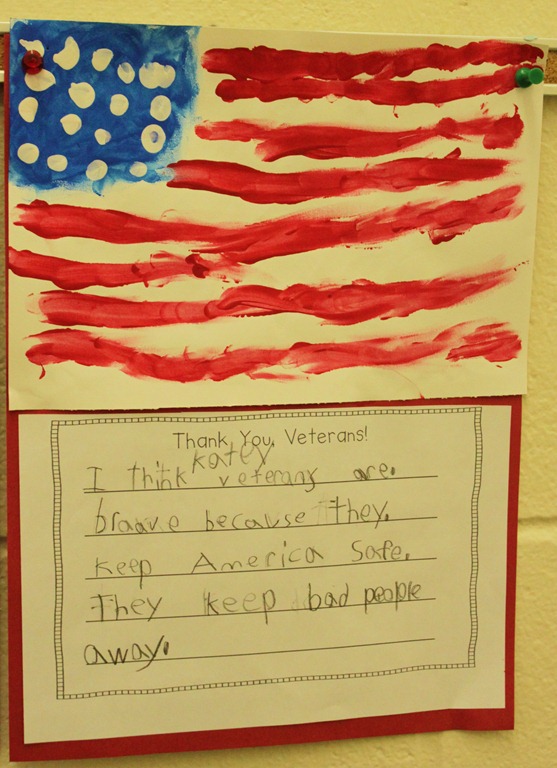 Thank You, Veterans!
Katey
I think veterans are.
braave because they.
keep America Safe.
They keep bad people
away.